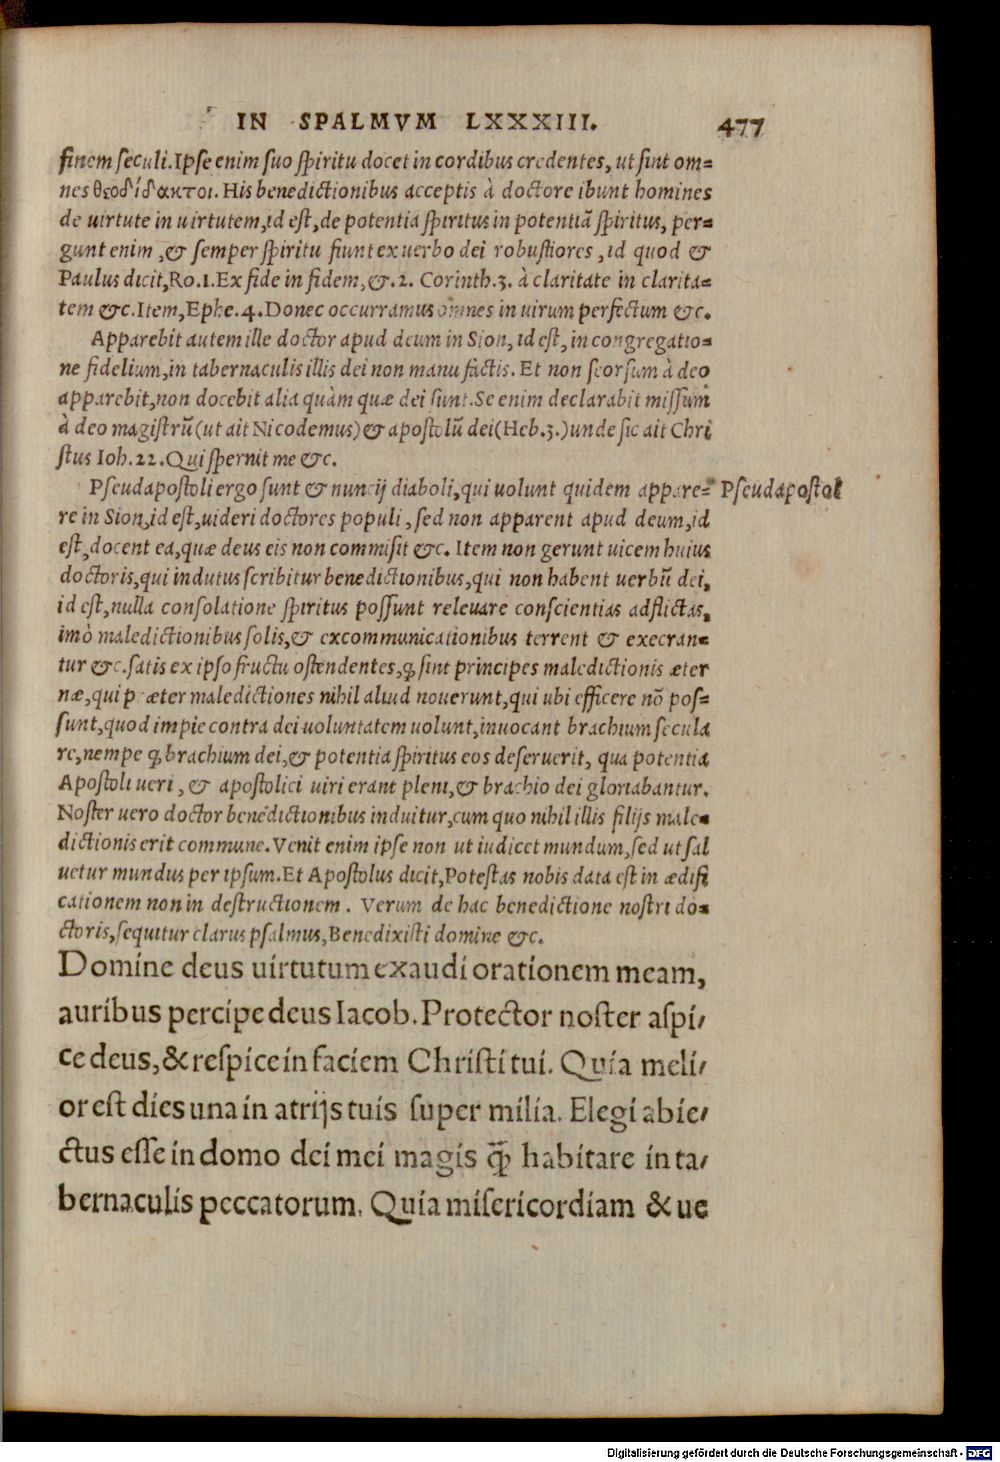 IN SPALMVM LXXXIII. 477
finem seculi. Ipse enim suo spiritu docet in cordibus credentes, ut sint om=
nes θεοδίδακτοι. His benedictionibus acceptis à doctore ibunt homines
de uirtute in uirtutem, id est, de potentia spiritus in potentiā spiritus, per=
gunt enim, & semper spiritu fiunt ex uerbo dei robustiores, id quod &
Paulus dicit, Ro.1. Ex fide in fidem, &.2. Corinth.3. à claritate in clarita=
tem &c. Item, Ephe.4. Donec occurramus omnes in uirum perfectum &c.
Apparebit autem ille doctor apud deum in Sion, id est, in congregatio=
ne fidelium, in tabernaculis illis dei non manu factis. Et non seorsum à deo
apparebit, non docebit alia quàm quæ dei sunt. Se enim declarabit missum
à deo magistrū (ut ait Nicodemus) & apostolū dei (Heb.3.) unde sic ait Chri
stus Ioh.22. Qui spernit me &c.
Pseudapostoli ergo sunt & nuncij diaboli, qui uolunt quidem appare= Pseudapostol
re in Sion, id est, uideri doctores populi, sed non apparent apud deum, id
est, docent ea, quæ deus eis non commisit &c. Item non gerunt uicem huius
doctoris, qui indutus scribitur benedictionibus, qui non habent uerbū dei,
id est, nulla consolatione spiritus possunt releuare conscientias adflictas,
imò maledictionibus solis, & excommunicationibus terrent & execran=
tur &c. satis ex ipso fructu ostendentes, ꝙ sint principes maledictionis æter
næ, qui præter maledictiones nihil aliud nouerunt, qui ubi efficere nō pos=
sunt, quod impie contra dei uoluntatem uolunt, inuocant brachium secula
re, nempe ꝙ brachium dei, & potentia spiritus eos deseruerit, qua potentia
Apostoli ueri, & apostolici uiri erant pleni, & brachio dei gloriabantur.
Noster uero doctor benedictionibus induitur, cum quo nihil illis filijs male=
dictionis erit commune. Venit enim ipse non ut iudicet mundum, sed ut sal
uetur mundus per ipsum. Et Apostolus dicit, Potestas nobis data est in ædifi
cationem non in destructionem. Verum de hac benedictione nostri do=
ctoris, sequitur clarus psalmus, Benedixisti domine &c.
Domine deus uirtutum exaudi orationem meam,
auribus percipe deus Iacob. Protector noster aspi/
ce deus, & respice in faciem Christi tui. Quia meli/
or est dies una in atrijs tuis super milia. Elegi abie/
ctus esse in domo dei mei magis ꝙ̃ habitare in ta/
bernaculis peccatorum. Quia misericordiam & ue
Digitalisierung gefördert durch die Deutsche Forschungsgemeinschaft - DFG